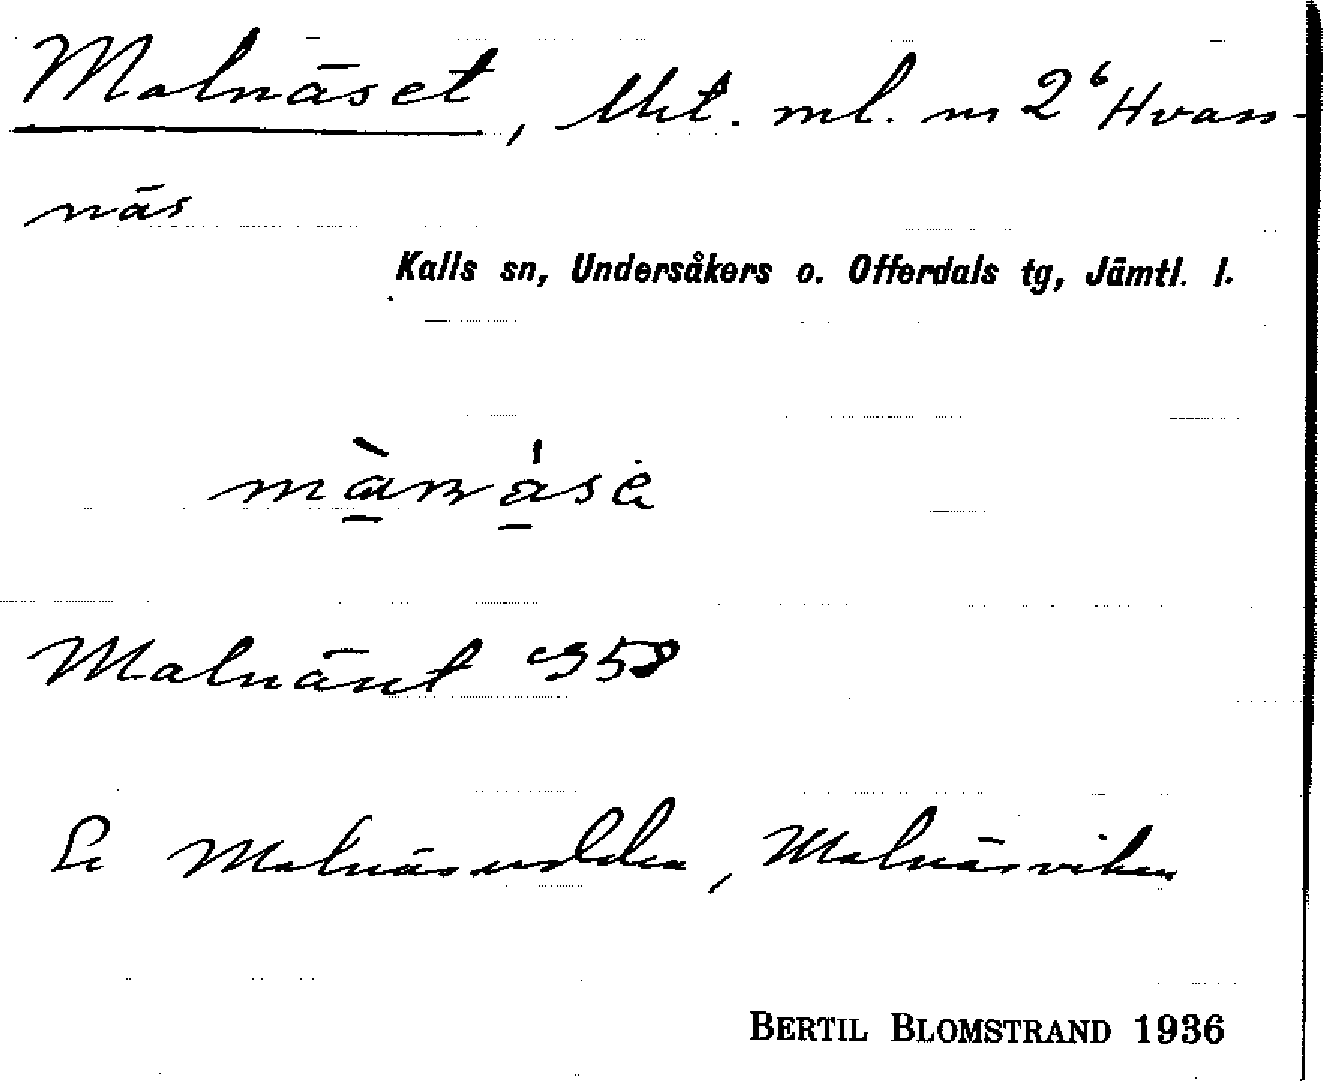 Malnäset, Utt. ml. nr 2⁶ Hvass-
näs
Kalls sn, Undersåkers o. Offerdals tg, Jämtl. l.
Malnäset S58
Se Malnäsudden, Malnäsviken
BERTIL BLOMSTRAND 1936